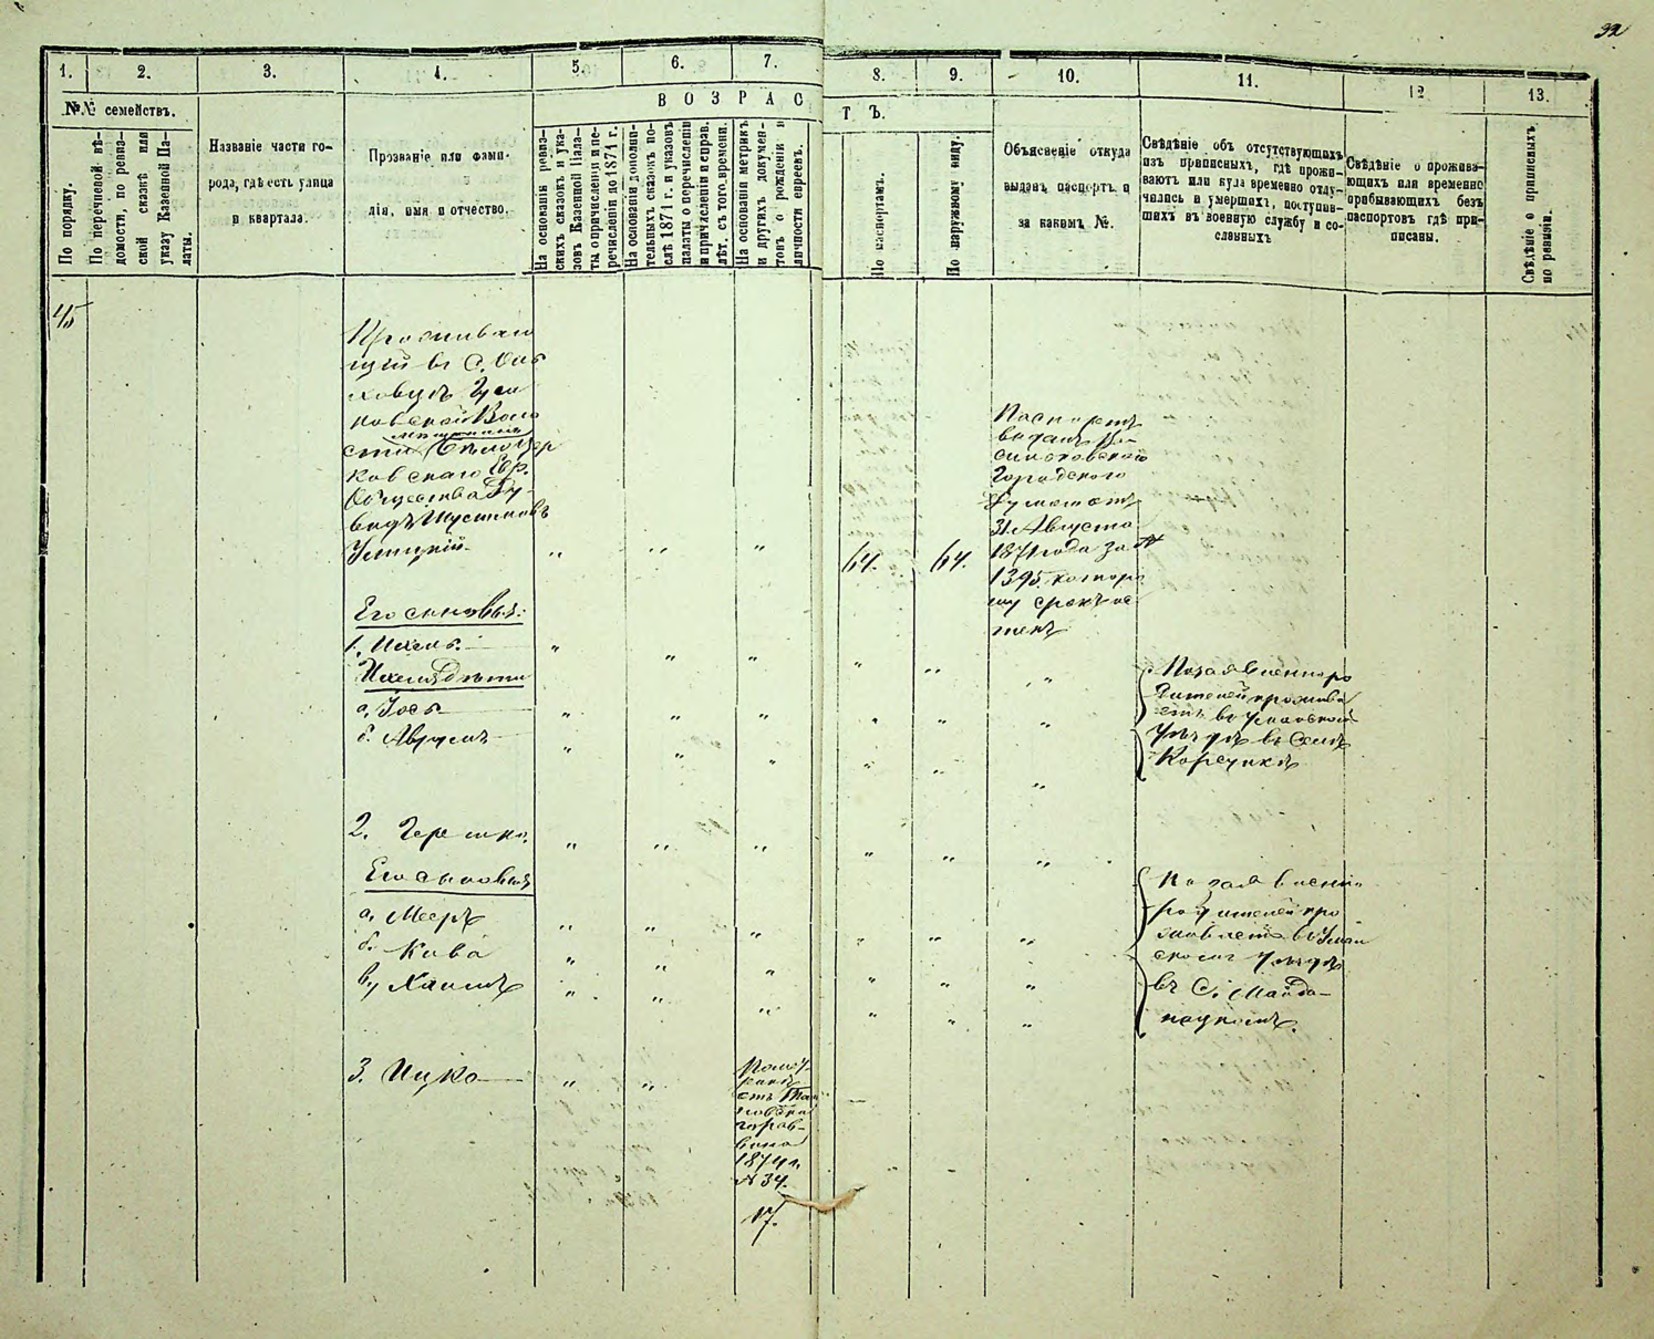 32
1.
2.
3.
4.
5.
6.
7.
8.
9.
10.
11.
12
13.
№№ семействъ.
По порядку.
По перечневой вѣ-
домости, по ревиз-
ской сказкѣ или
указу Казенной Па-
латы.
Названіе части го-
рода, гдѣ есть улица
и квартала.
Прозваніе или фами-
лія, имя и отчество.
ВОЗРАС
ТЪ.
На основаніи ревиз-
скихъ сказокъ и ука-
зовъ Казенной Пала-
ты о причисленіи и пе-
речисленіи до 1871 г.
На основаніи дополни-
тельныхъ сказокъ по-
слѣ 1871 г. и указовъ
палаты о перечисленіи
и причисленіи и справ.
лѣт. съ того времени.
На основаніи метрикъ
и другихъ докумен-
товъ о рожденіи и
личности евреевъ.
По паспортамъ.
По наружному виду.
Объясненіе откуда
выданъ паспортъ и
за какимъ №.
Свѣдѣніе объ отсутствующихъ
изъ приписныхъ, гдѣ прожи-
ваютъ или куда временно отлу-
чились и умершихъ, поступив-
шихъ въ военную службу и со-
сланныхъ
Свѣдѣніе о прожива-
ющихъ или временно
прибывающихъ безъ
паспортовъ гдѣ при-
писаны.
Свѣдѣніе о приписныхъ
по ревизіи.
45
Проживаю
щій въ С.
ковской Воло
сти Бѣлоцер
ковскаго Евр.
Общества Ду-
видъ
Умицкій
64.
64.
Паспортъ
выданъ
Городского
31. Августа
1871 года за №
1395. котор
му срокъ ис
текъ
Его сыновья:
1. Ихель.
Ихеля дѣти
а. Іось
б. Аврумъ
По заявленію ро
дителей прожива
етъ въ Уманскомъ
Уѣздѣ въ Селѣ
2. Гершко.
Его сыновья
а. Мееръ
б. Кива
в, Хаимъ
По заявленію
родителей про
живаетъ въ Уман
скомъ Уѣздѣ
въ С. Майда-
нецкомъ.
3. Ицко
раввина
1874 г.
№ 34.
17.